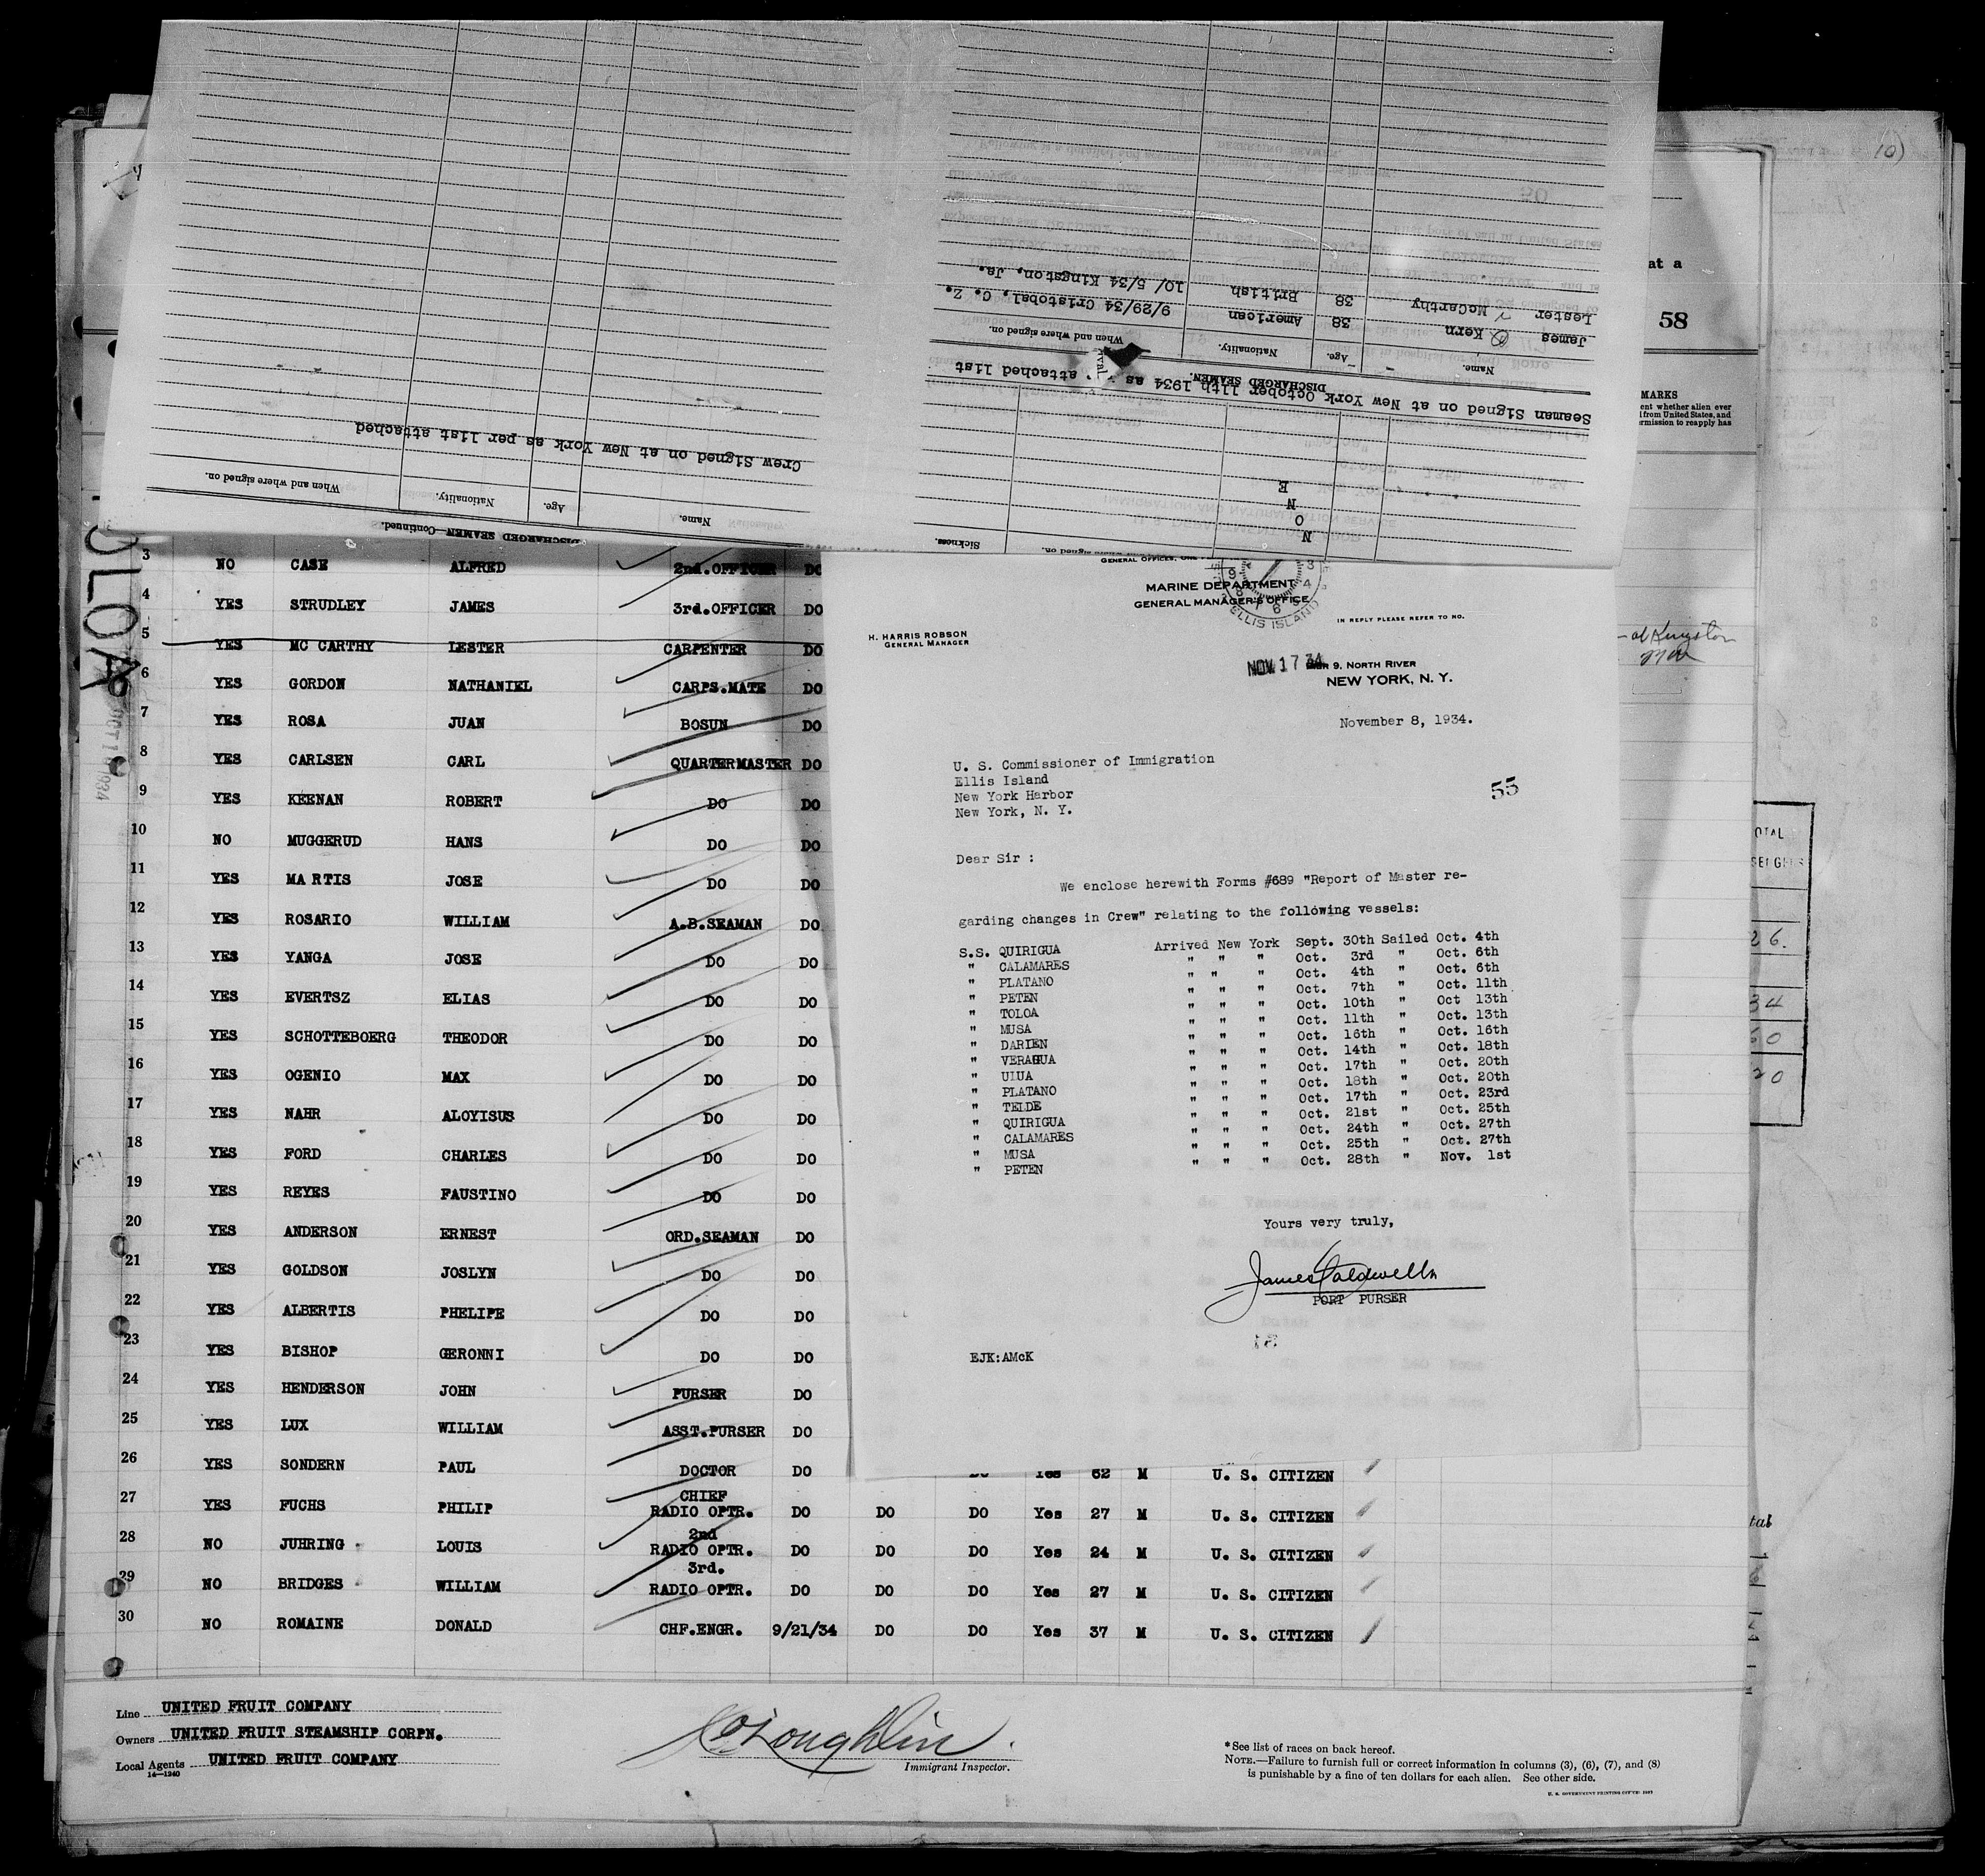 10)
DISCHARGED SEAMEN—Continued.
Name. Age. Nationality. When and where signed on.
Crew Signed on at New York as per list attached
Sickness.
N
O
N
E
Seaman Signed on at New York October 11th 1934 as attached list
DISCHARGED SEAMEN.
Name. Age. Nationality. When and where signed on.
James Kern 38 American 9/29/34 Cristobal, C. Z.
Lester McCarthy 38 British 10/ 5/34 Kingston, Ja.
at a
58
MARKS
ent whether alien ever
from United States, and
ermission to reapply has
OLOA
OCT 1 1934
3 NO CASE ALFRED 2nd.OFFICER DO
4 YES STRUDLEY JAMES 3rd.OFFICER DO
5 YES MC CARTHY LESTER CARPENTER DO
at Kingston
6 YES GORDON NATHANIEL CARPS.MATE DO
7 YES ROSA JUAN BOSUN DO
8 YES CARLSEN CARL QUARTERMASTER DO
9 YES KEENAN ROBERT DO DO
10 NO MUGGERUD HANS DO DO
11 YES MARTIS JOSE DO DO
12 YES ROSARIO WILLIAM A.B.SEAMAN DO
13 YES YANGA JOSE DO DO
14 YES EVERTSZ ELIAS DO DO
15 YES SCHOTTEBOERG THEODOR DO DO
16 YES OGENIO MAX DO DO
17 YES NAHR ALOYISUS DO DO
18 YES FORD CHARLES DO DO
19 YES REYES FAUSTINO DO DO
20 YES ANDERSON ERNEST ORD.SEAMAN DO
21 YES GOLDSON JOSLYN DO DO
22 YES ALBERTIS PHELIPE DO DO
23 YES BISHOP GERONNI DO DO
24 YES HENDERSON JOHN PURSER DO
25 YES LUX WILLIAM ASST.PURSER DO
26 YES SONDERN PAUL DOCTOR DO DO Yes 62 M U. S. CITIZEN
27 YES FUCHS PHILIP CHIEF RADIO OPTR. DO DO DO Yes 27 M U. S. CITIZEN
28 NO JUHRING LOUIS 2nd RADIO OPTR. DO DO DO Yes 24 M U. S. CITIZEN
29 NO BRIDGES WILLIAM 3rd. RADIO OPTR. DO DO DO Yes 27 M U. S. CITIZEN
30 NO ROMAINE DONALD CHF.ENGR. 9/21/34 DO DO Yes 37 M U. S. CITIZEN
GENERAL OFFICES, ONE
MARINE DEPARTMENT
GENERAL MANAGER'S OFFICE
ELLIS ISLAND
IN REPLY PLEASE REFER TO NO.
H. HARRIS ROBSON
GENERAL MANAGER
NOV 17 34
PIER 9, NORTH RIVER
NEW YORK, N. Y.
November 8, 1934.
U. S. Commissioner of Immigration
Ellis Island
New York Harbor
New York, N. Y.
55
Dear Sir :
We enclose herewith Forms #689 "Report of Master re-
garding changes in Crew" relating to the following vessels:
S.S. QUIRIGUA Arrived New York Sept. 30th Sailed Oct. 4th
" CALAMARES " " " Oct. 3rd " Oct. 6th
" PLATANO " " " Oct. 4th " Oct. 6th
" PETEN " " " Oct. 7th " Oct. 11th
" TOLOA " " " Oct. 10th " Oct 13th
" MUSA " " " Oct. 11th " Oct. 13th
" DARIEN " " " Oct. 16th " Oct. 16th
" VERAGUA " " " Oct. 14th " Oct. 18th
" ULUA " " " Oct. 17th " Oct. 20th
" PLATANO " " " Oct. 18th " Oct. 20th
" TELDE " " " Oct. 17th " Oct. 23rd
" QUIRIGUA " " " Oct. 21st " Oct. 25th
" CALAMARES " " " Oct. 24th " Oct. 27th
" MUSA " " " Oct. 25th " Oct. 27th
" PETEN " " " Oct. 28th " Nov. 1st
Yours very truly,
James Caldwell
PORT PURSER
18
EJK:AMcK
OTAL
SENGERS
26.
34
60
20
tal
Line UNITED FRUIT COMPANY
Owners UNITED FRUIT STEAMSHIP CORPN.
Local Agents UNITED FRUIT COMPANY
14—1240
McLoughlin.
Immigrant Inspector.
*See list of races on back hereof.
NOTE.—Failure to furnish full or correct information in columns (3), (6), (7), and (8)
is punishable by a fine of ten dollars for each alien. See other side.
U. S. GOVERNMENT PRINTING OFFICE: 1931